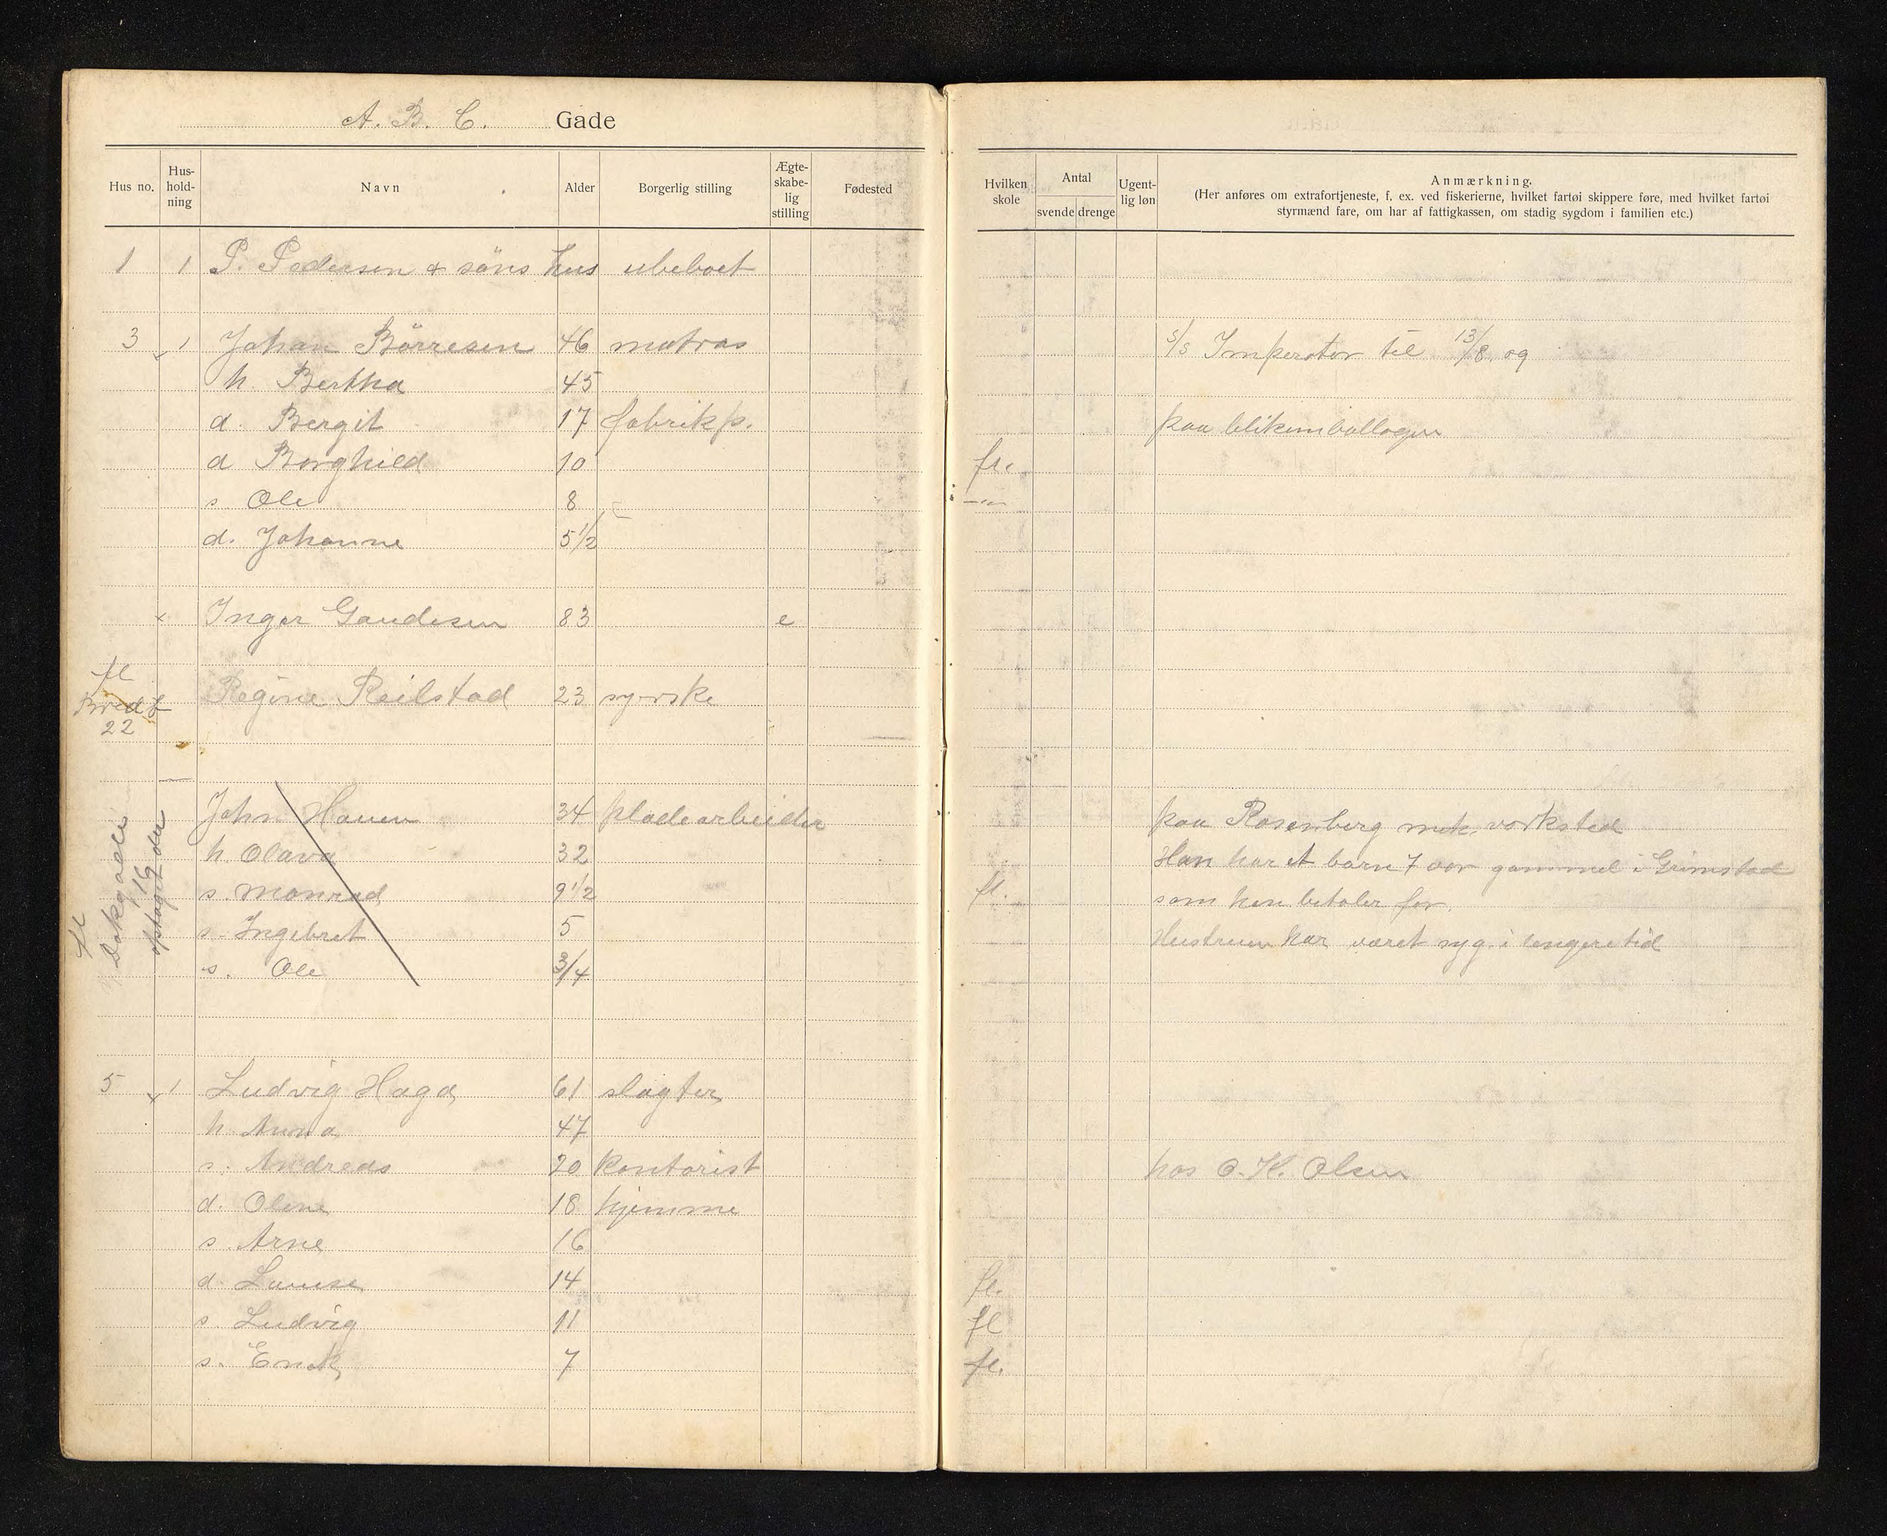 A. B. C. Gade
Hus no. Hus-hold-ning Navn Alder Borgerlig stilling Ægte-skabe-lig stilling Fødested
Hvilken skole Antal svende drenge Ugent-lig løn Anmærkning.
(Her anføres om extrafortjeneste, f. ex. ved fiskerierne, hvilket fartøi skippere føre, med hvilket fartøi
styrmænd fare, om har af fattigkassen, om stadig sygdom i familien etc.)
1 1 P. Pedersen & søns hus ubeboet
3 1 Johan Børresen 46 matros s/s Imperator til 13/8 og
h. Bertha 45
d. Bergit 17 fabrikp. paa blikemballagen
d Borghild 10 fl.
s. Ole 8 —"—
d. Johanne 5 1/2
x Inger Gaudesen 83 e
fl
Bredg
22
Regine Reilstad 23 syerske
fl Dokgaden 16
optaget der
John Hauen 34 pladearbeider paa Rosenberg mek. verksted
h. Olava 32 Han har et barn 7 aar gammel i Grimstad
s. Monrad 9 1/2 fl. som han betaler for.
s. Ingebret 5 Hustruen har været syg i lengere tid
s. Ole 3/4
5 x 1 Ludvig Haga 61 slagter
h. Anna 47
s. Andreas 20 kontorist hos O. K. Olsen
d. Oline 18 hjemme
s. Arne 16
d. Louise 14 fl.
s. Ludvig 11 fl
s. Enok 7 fl.